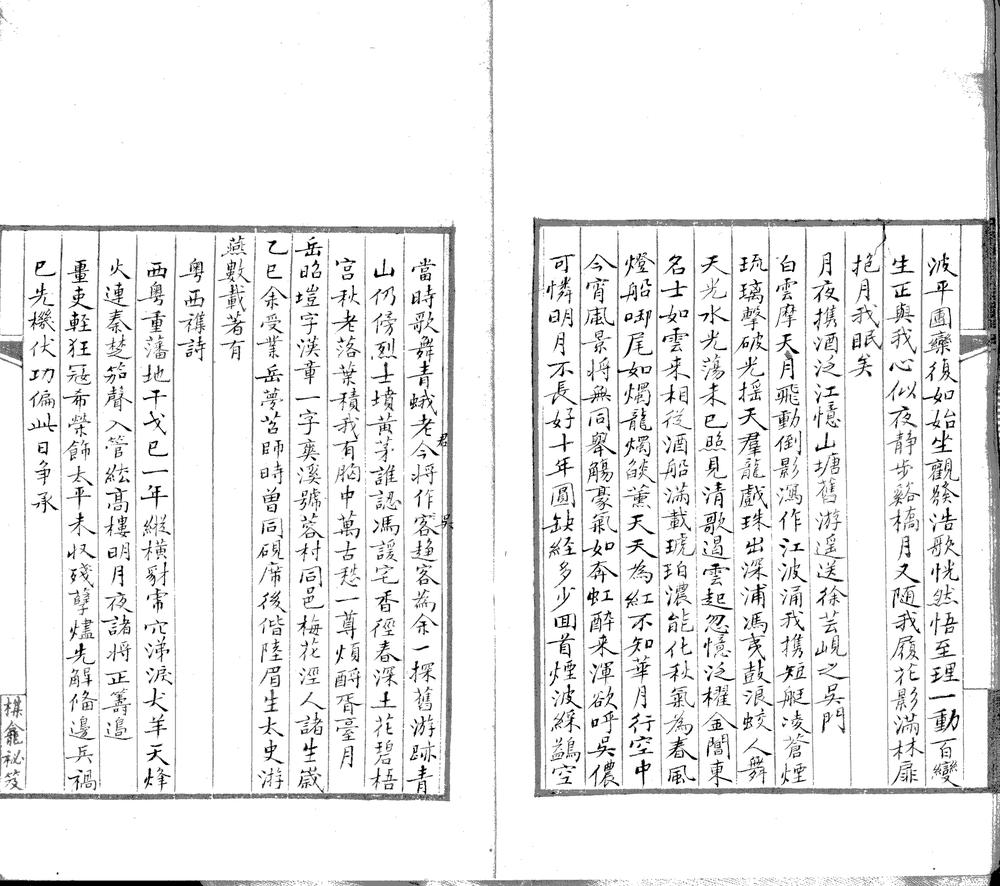 波平圓欒復如始坐觀發浩歌恍然悟至理一動百變
生正與我心似夜靜步谿橋月又随我履花影滿林扉
抱月我眠矣
月夜携酒泛江憶山塘舊游遥送徐芸峴之吳門
白雲摩天月飛動倒影瀉作江波涌我携短艇凌蒼煙
琉璃擊破光摇天羣龍戲珠出深浦馮夷鼓浪蛟人舞
天光水光蕩未已照見清歌遏雲起忽憶泛櫂金閶東
名士如雲来相從酒船滿載琥珀濃能化秋氣為春風
燈船啣尾如燭龍燭燄薰天天為紅不知華月行空中
今宵風景将無同舉觴豪氣如奔虹醉来渾欲呼吳儂
可憐明月不長好十年圓缺経多少回首煙波綵鷁空
當時歌舞青蛾老今将作客趋客為余一探舊游跡青
君 吳
山仍傍烈士墳黃茅誰認馮諼宅香徑春深土花碧梧
宫秋老落葉積我有胸中萬古愁一尊煩酹胥臺月
岳昭塏字漢章一字奭溪號蓉村同邑梅花涇人諸生歲
乙巳余受業岳夢苕師時曽同硯席後偕陸眉生太史游
燕數載著有
粤西襍詩
西粤重藩地干戈已一年縱横豺虎穴涕淚犬羊天烽
火連秦楚笳聲入管絃高樓明月夜諸将正籌邉
畺吏輕狂冦希榮飾太平未収殘孽燼先解僃邊兵禍
已先機伏功偏此日争承
棋龕祕笈